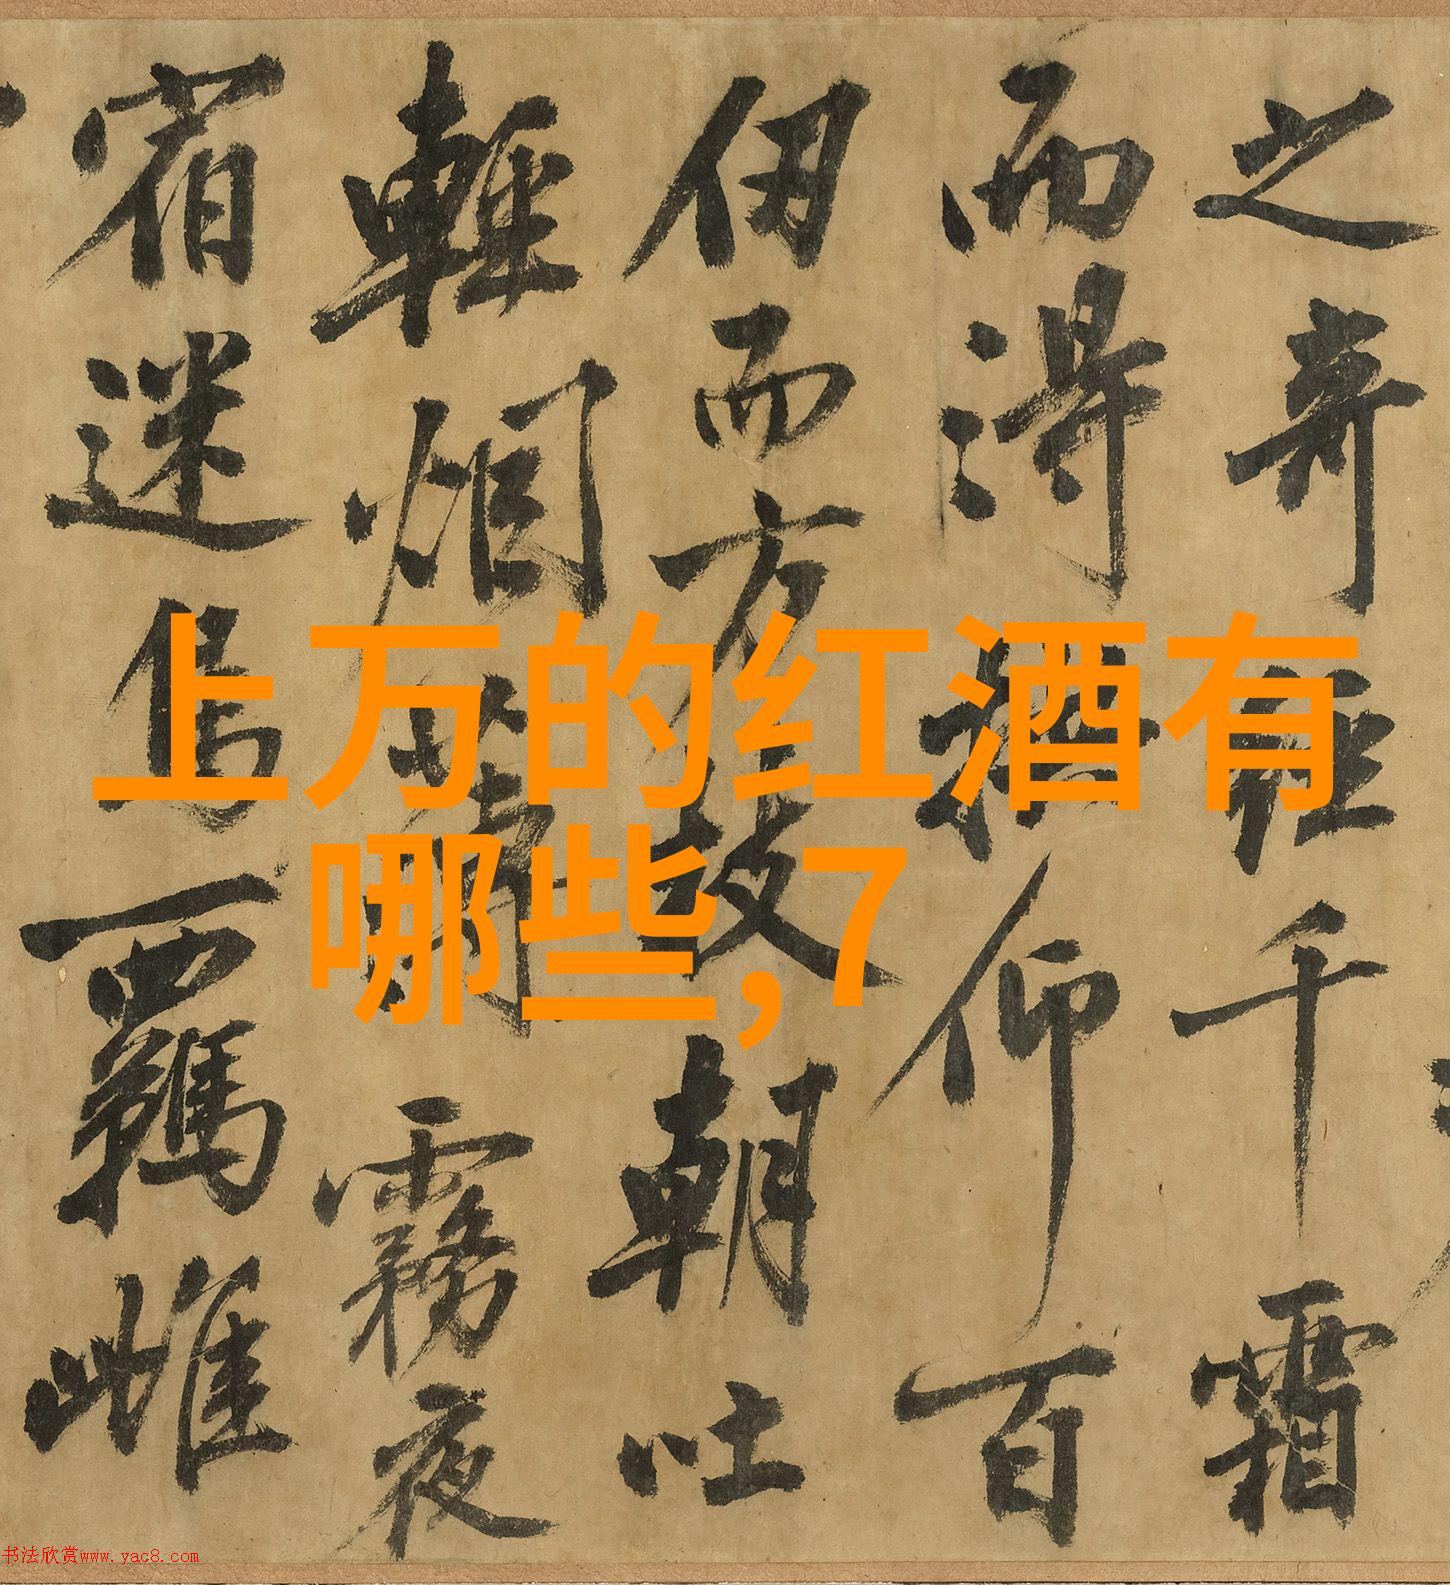 之奇千霜
而得仰百
仞而方枝朝吐
輕烟霧夜
宿迷鳥羈雌
上万的红酒有
哪些,7
书法欣赏www.yac8.com